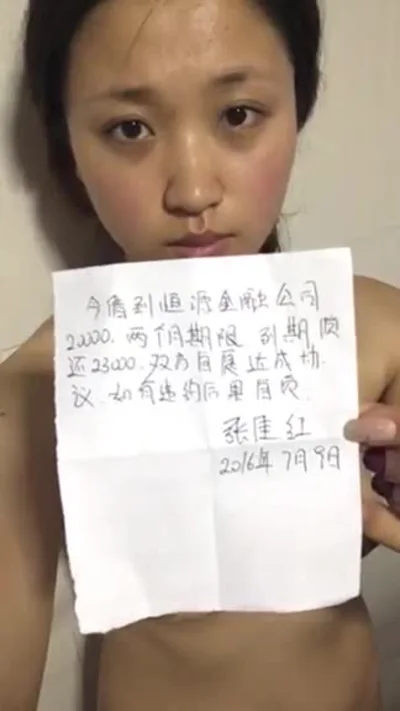 今借到恒源金融公司
20000，两个月期限，到期须
还23000，双方自愿达成协
议，如有违约后果自负。
2016年7月9日